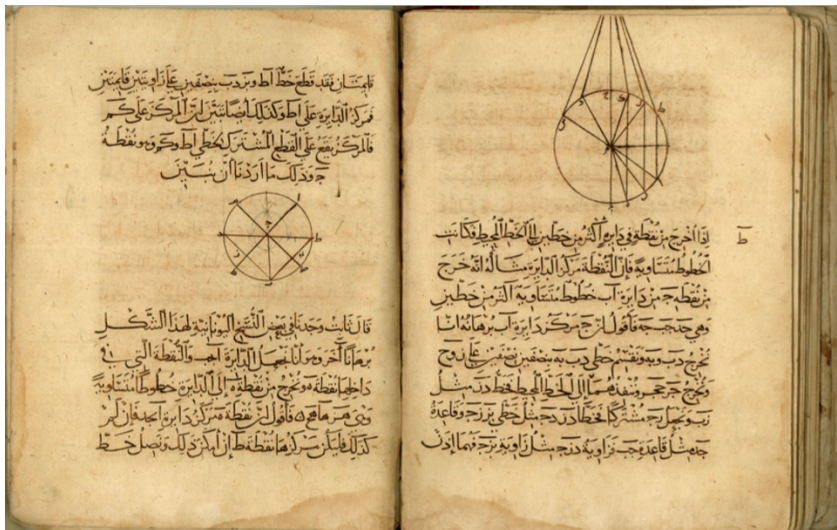 ط
إذا اخرج من نقطة في دايرة اكثر من خطين الى الخط المحيط فكانت
الخطوط متساوية فإن النقطة مركز الدايرة مثاله انه خرج
من نقطة ج من دايرة اب خطوط متساوية اكثر من خطين
وهي جد جب جه فاقول ان ج مركز دايرة اب برهانه انا
نخرج دب وبه ونقسم خطي دب به بنصفين بنصفين على ز وح
ونخرج وننفذهما الى الخط المحيط فخط دز مثل
زب ونجعل زج مشتركا فخطا دز زج مثل خطي بز زج وقاعدة
جد مثل قاعدة جب فزاوية دزج مثل زاوية بزج فهما إذن
قايمتان فقد قطع خط اط وتر دب بنصفين على زاويتين قايمتين
فمركز الدايرة على اط وكذلك ايضا نبين ان المركز على كم
فالمركز يقع على القطع المشترك لخطي اط وكم وهو نقطة
ج وذلك ما اردنا أن نبين
قال ثابت وجدنا في بعض النسخ اليونانية لهذا الشكل
برهانا آخر وهو انا نجعل الدايرة ابج والنقطة التي في
داخلها نقطة ه ونخرج من نقطة ه الى الدايرة خطوطا متساوية
وهي فاقول ان نقطة ه مركز دايرة فإن لم
كذلك فليكن مركزها نقطة ط إن امكن ذلك ونصل خط